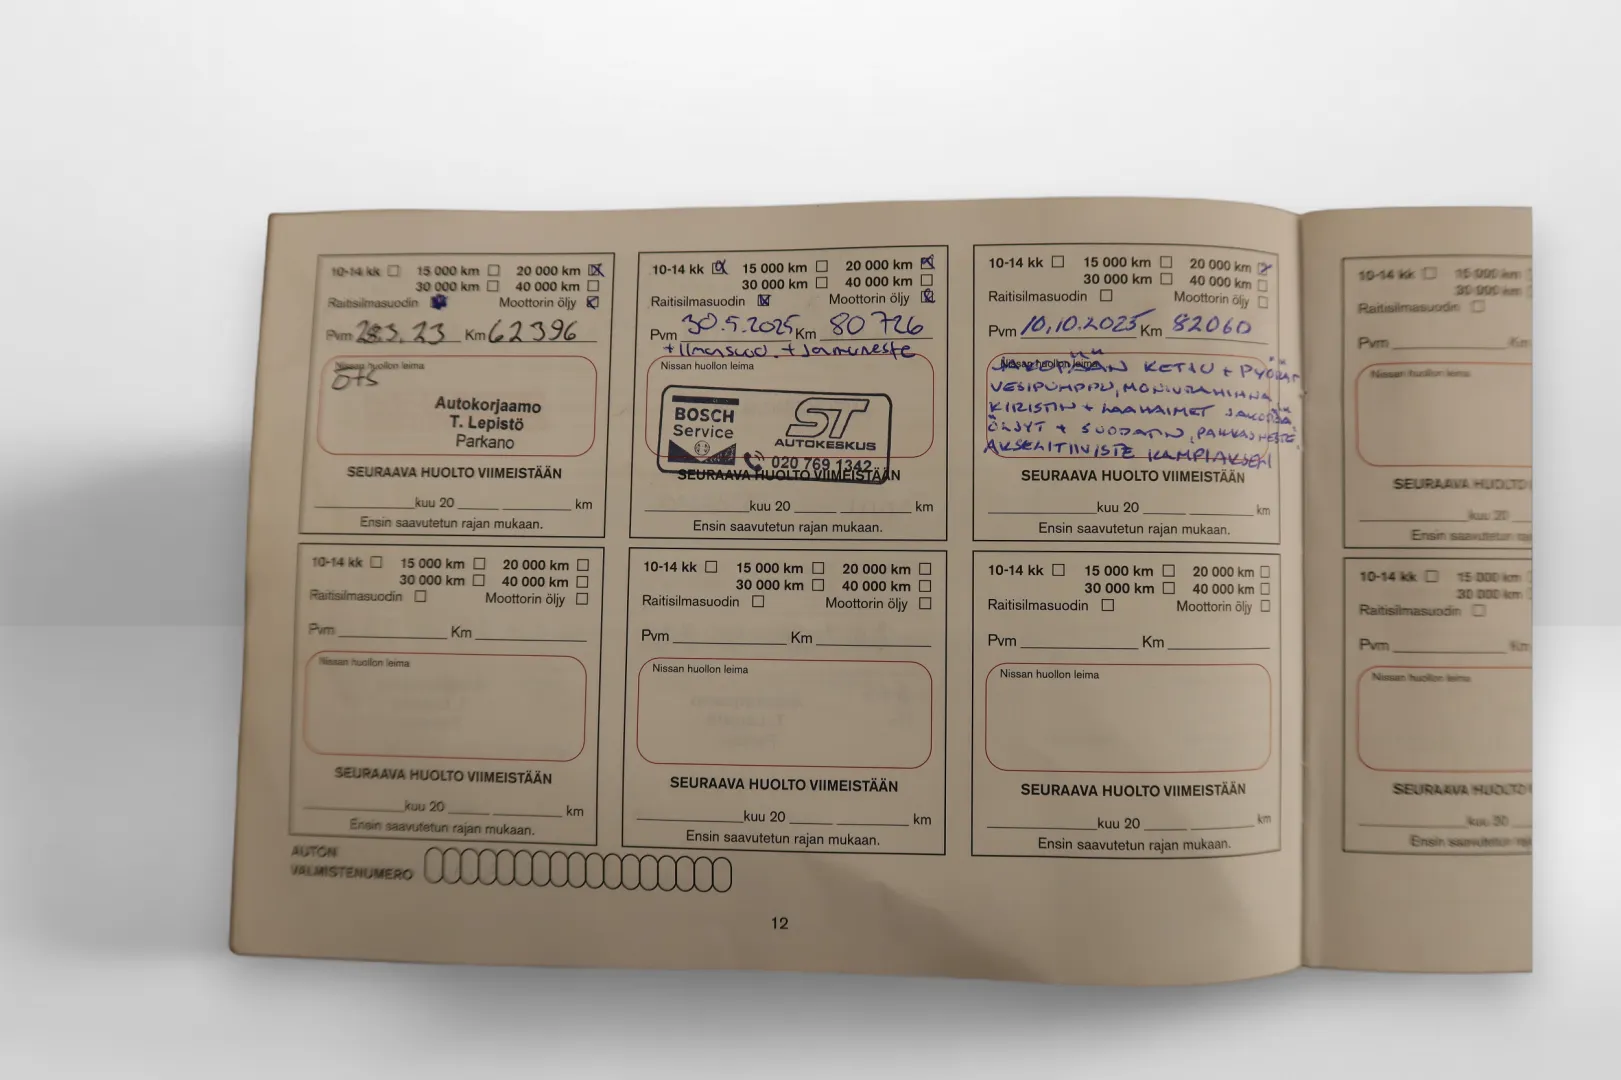 10-14 kk 15 000 km 20 000 km
30 000 km 40 000 km
Raitisilmasuodin Moottorin öljy
Pvm 28.5.23 Km 62396
Nissan huollon leima
OTS
Autokorjaamo
T. Lepistö
Parkano
SEURAAVA HUOLTO VIIMEISTÄÄN
kuu 20 km
Ensin saavutetun rajan mukaan.
10-14 kk 15 000 km 20 000 km
30 000 km 40 000 km
Raitisilmasuodin Moottorin öljy
Pvm 30.5.2025 Km 80726
+Ilmansuod. + Jarruneste
Nissan huollon leima
BOSCH
Service
ST
AUTOKESKUS
020 769 1342
SEURAAVA HUOLTO VIIMEISTÄÄN
kuu 20 km
Ensin saavutetun rajan mukaan.
10-14 kk 15 000 km 20 000 km
30 000 km 40 000 km
Raitisilmasuodin Moottorin öljy
Pvm 10.10.2025 Km 82060
Nissan huollon leima
JAKOPÄÄN KETJU + PYÖRÄT
VESIPUMPPU, MONIURAHIHNA
KIRISTIN + LAAHAIMET
ÖLJYT + SUODATIN, PAKKASNESTE
AKSELITIIVISTE KAMPIAKSELI
SEURAAVA HUOLTO VIIMEISTÄÄN
kuu 20 km
Ensin saavutetun rajan mukaan.
10-14 kk 15 000 km
30 000 km
Raitisilmasuodin
Pvm Km
Nissan huollon leima
SEURAAVA HUOLTO
kuu 20
Ensin saavutetun
10-14 kk 15 000 km 20 000 km
30 000 km 40 000 km
Raitisilmasuodin Moottorin öljy
Pvm Km
Nissan huollon leima
SEURAAVA HUOLTO VIIMEISTÄÄN
kuu 20 km
Ensin saavutetun rajan mukaan.
10-14 kk 15 000 km 20 000 km
30 000 km 40 000 km
Raitisilmasuodin Moottorin öljy
Pvm Km
Nissan huollon leima
SEURAAVA HUOLTO VIIMEISTÄÄN
kuu 20 km
Ensin saavutetun rajan mukaan.
10-14 kk 15 000 km 20 000 km
30 000 km 40 000 km
Raitisilmasuodin Moottorin öljy
Pvm Km
Nissan huollon leima
SEURAAVA HUOLTO VIIMEISTÄÄN
kuu 20 km
Ensin saavutetun rajan mukaan.
10-14 kk 15 000 km
30 000 km
Raitisilmasuodin
Pvm Km
Nissan huollon leima
SEURAAVA HUOLTO
kuu 20
Ensin saavutetun
AUTON
VALMISTENUMERO
12